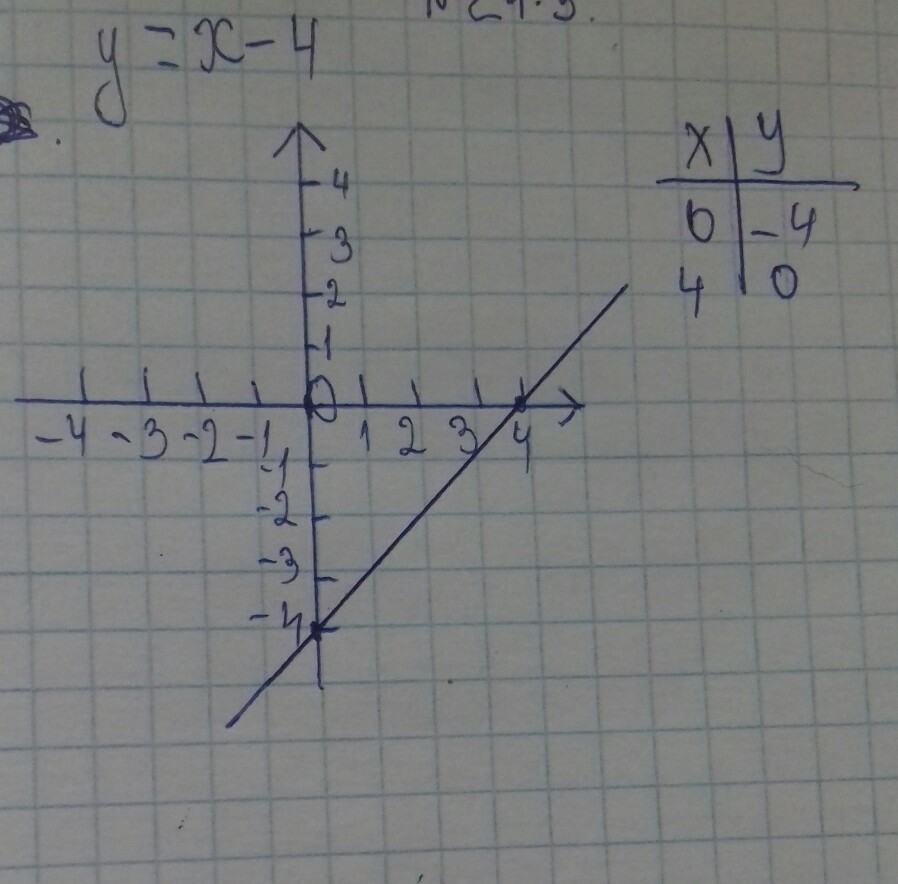 y = x - 4
x | y
0 | -4
4 | 0
4
3
2
1
-4 -3 -2 -1 0 1 2 3 4
-1
-2
-3
-4